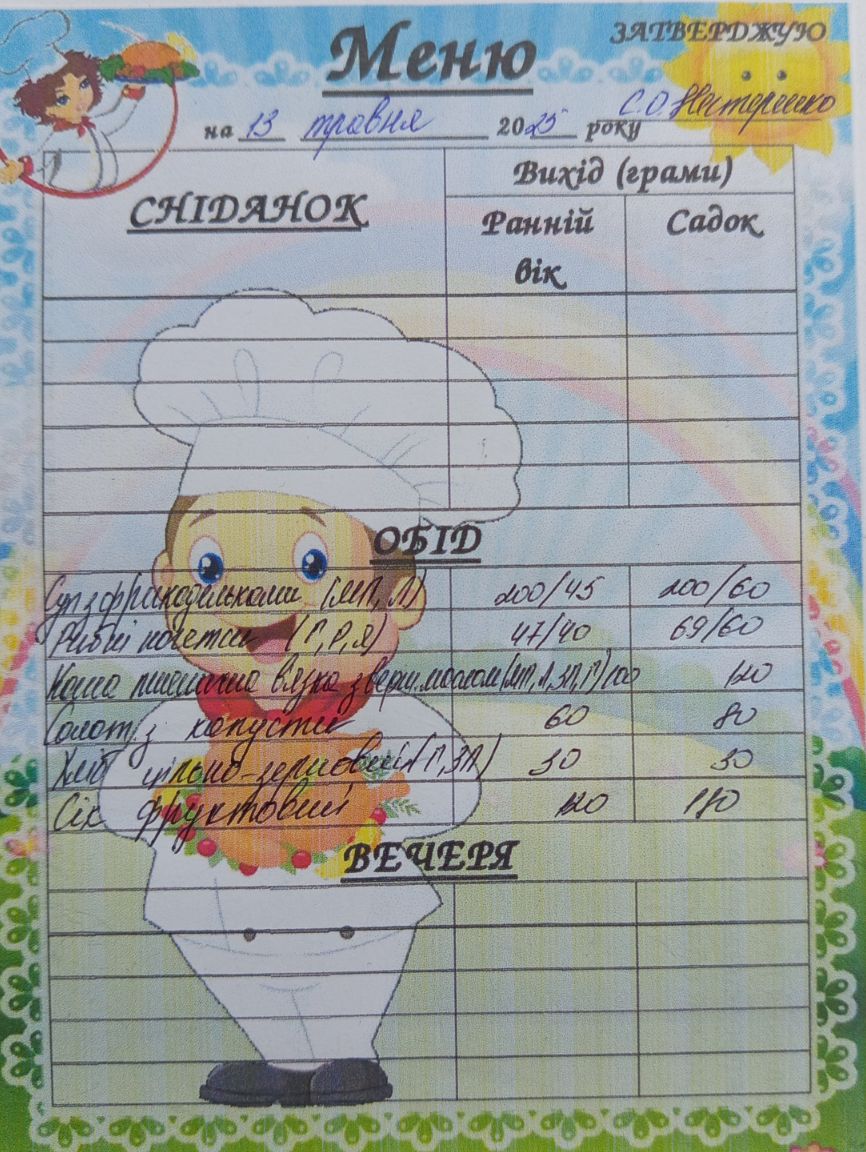 Меню
ЗАТВЕРДЖУЮ
на 13 травня 2025 року С.О. Нестеренко
СНІДАНОК
Вихід (грами)
Ранній вік
Садок
ОБІД
Суп з фрикадельками (МП, Л) 200/45 200/60
Рибні нагетси (Г, Р, Я) 47/40 69/60
Каша пшенична в'язка з верш. маслом (МП, Л, ЗП, Г) 100 120
Салат з капусти 60 80
Хліб цільно-зерновий (Г, ЗП) 30 30
Сік фруктовий 120 180
ВЕЧЕРЯ